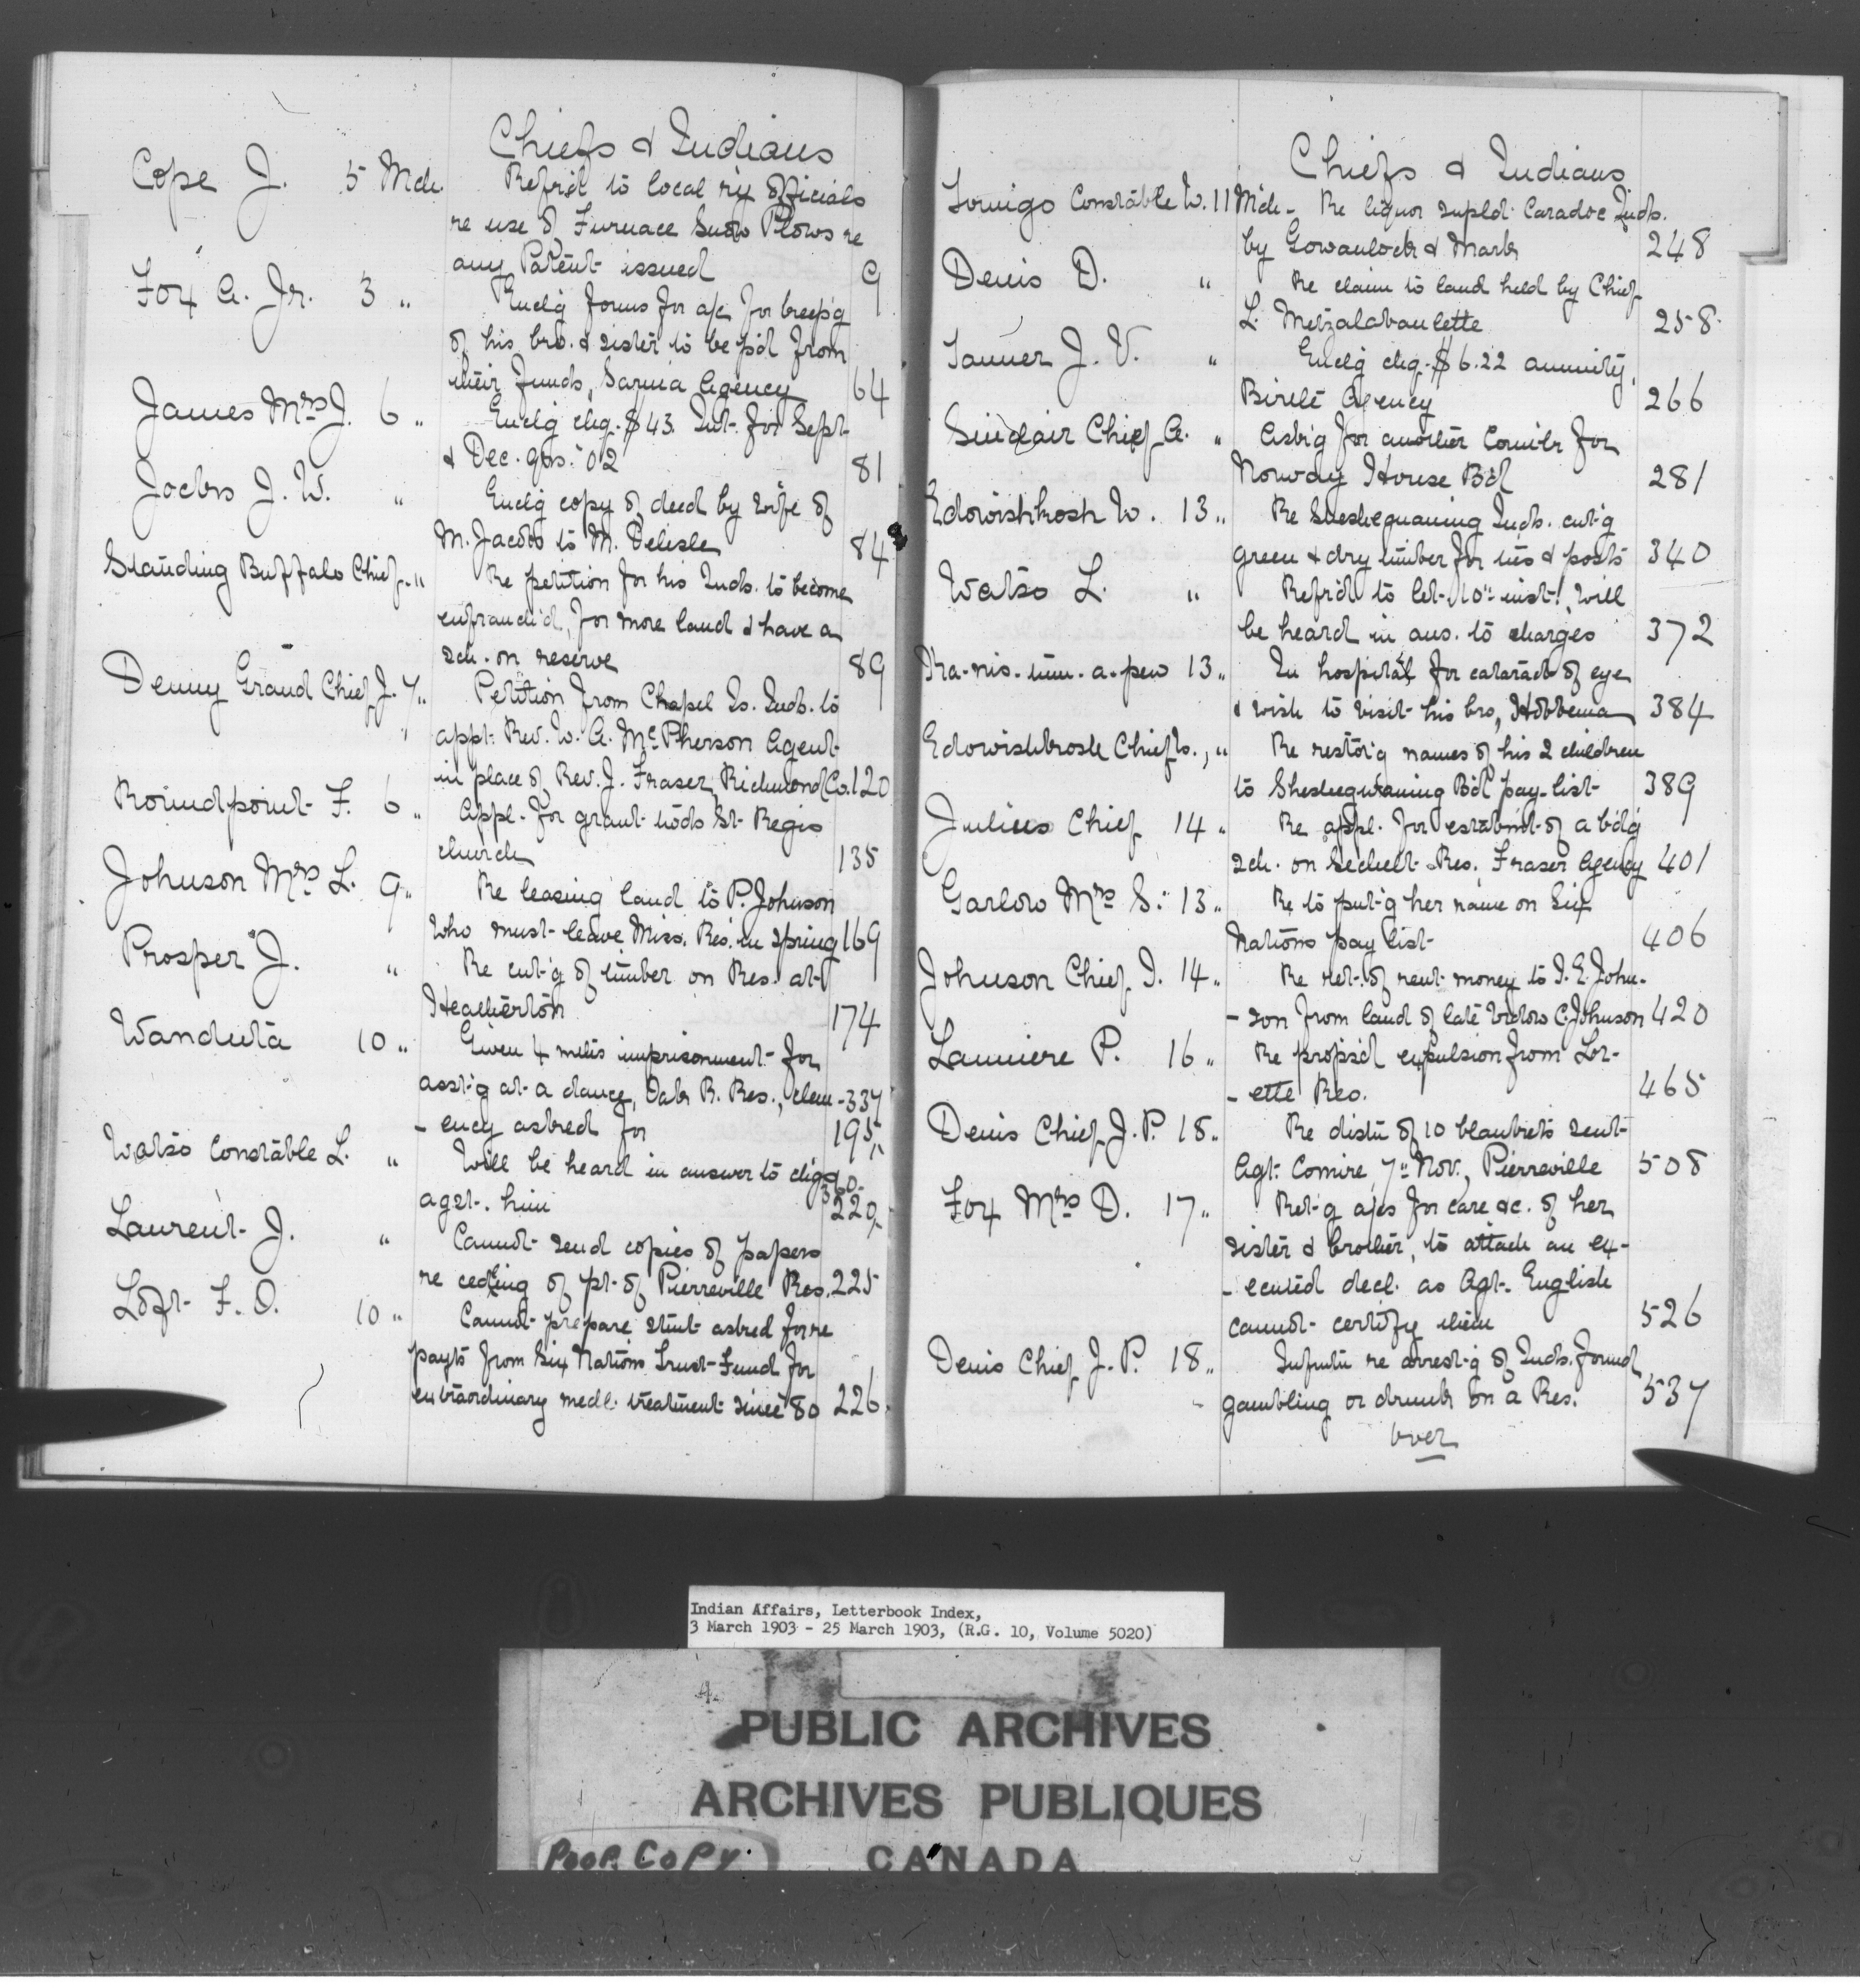 Chiefs & Indians
Cope J. 5 Mch. Refr'd to local ry officials
re use of Furnace Snow Plows re
any Patent issued 9
Fox A. Jr. 3 " Enclg forms for a/c for keep'g
of his bro. & sister to be p'd from
their funds, Sarnia Agency 64
James Mrs J. 6 " Enclg chq. $43. Int. for Sept.
& Dec. qrs. '02 81
Jacobs J. W. " Enclg copy of deed by wife of
M. Jacobs to M. Delisle 84
Standing Buffalo Chief " Re petition for his Inds. to become
enfranch'd, for more land & have a
sch. on reserve 89
Denny Grand Chief J. 7 " Petition from Chapel Is. Inds. to
appt. Rev. W. A. McPherson Agent
in place of Rev. J. Fraser, Richmond Co. 120
Roundpoint F. 6 " Appl. for grant tods St. Regis
church 135
Johnson Mrs L. 9 " Re leasing land to P. Johnson
who must leave Miss. Res. in spring 169
Prosper J. " Re cut'g of timber on Res. at
Heatherton 174
Wanduta 10 " Given 4 mths imprisonment for
asst'g at a dance, Oak R. Res., clem- 337
-ency asked for 195
Watso Constable L. " Will be heard in answer to chgs 360
agst. him 220
Laurent J. " Cannot send copies of papers
re ceding of pt. of Pierreville Res. 225
Loft F. O. 10 " Cannot prepare stmt asked for re
payts from Six Nations Trust Fund for
extraordinary medl. treatment since '80 226
Chiefs & Indians
Tomigo Constable W. 11 Mch - Re liquor supld. Caradoc Inds.
by Gowanlock & Mark 248
Denis D. " Re claim to land held by Chief
L. Metzalabaulette 258
Tanner J. V. " Enclg chq. $6.22 annuity,
Birtle Agency 266
Sinclair Chief A. " Ask'g for another Councilr for
Norway House Bd 281
Edowishkosh W. 13 " Re Sheshequaning Inds. cut'g
green & dry timber for ties & posts 340
Watso L. " Refr'd to let. 10" inst., will
be heard in ans. to charges 372
Ka-nis-um-a-pew 13 " In hospital for cataract of eye
& wish to visit his bro, Hobbema 384
Edowishkosh Chief W., " Re restor'g names of his 2 children
to Sheshegwaning Bd pay-list 389
Julius Chief 14 " Re appl. for establmt. of a bd'g
sch. on Sechelt Res. Fraser Agency 401
Garlow Mrs S. 13 " Re to put'g her name on Six
Nations pay list 406
Johnson Chief I. 14 " Re ret. of rent money to I. E. John-
-son from land of late widow C. Johnson 420
Lainiere P. 16 " Re propos'd expulsion from Lor-
-ette Res. 465
Denis Chief J. P. 18 " Re distn of 10 blankets sent
Agt. Comire, 7" Nov., Pierreville 508
Fox Mrs D. 17 " Ret-g a/cs for care &c. of her
sister & brother, to attach an ex-
-ecuted decl. as Agt. English
cannot certify them 526
Denis Chief J. P. 18 " Infmtn re arrest'g of Inds. found
gambling or drunk on a Res. 537
over
Indian Affairs, Letterbook Index,
3 March 1903 - 25 March 1903, (R.G. 10, Volume 5020)
PUBLIC ARCHIVES
ARCHIVES PUBLIQUES
CANADA
POOR COPY